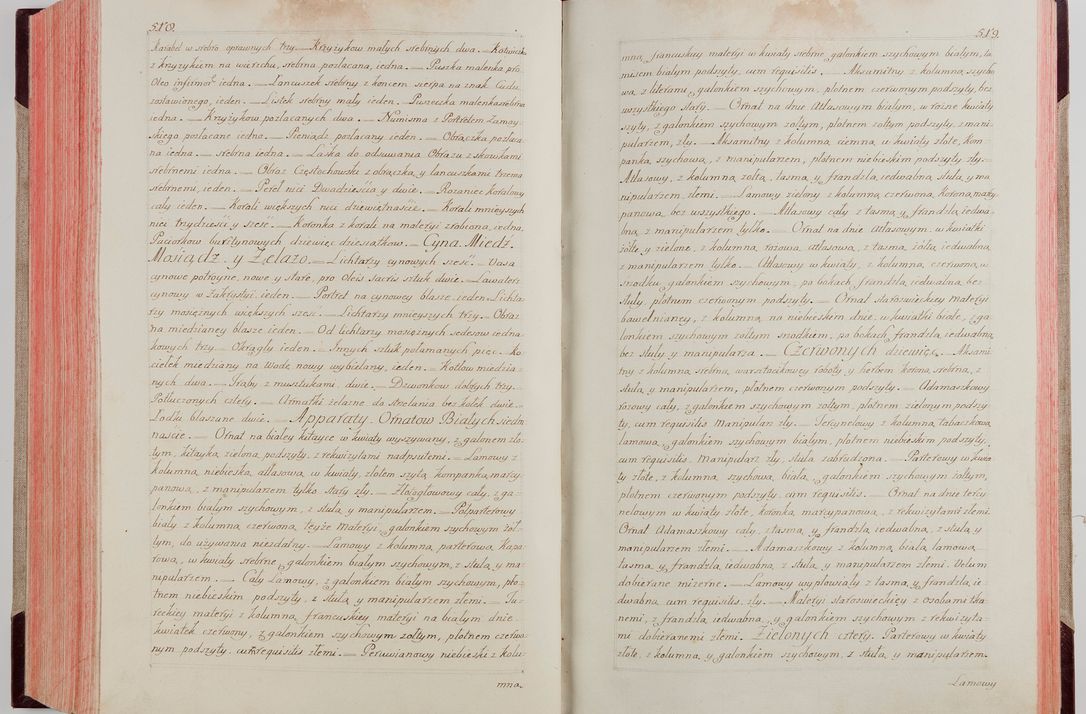 518.
Karabel w srebro oprawnych trzy. — Krzyzykow małych srebrnych dwa. — Kotwiczka
z krzyzykiem na wierzchu, srebrna pozłacana, iedna. — Puszka malenka pro
Oleo infirmor: iedna. — Lancuszek srebrny z koncem sierpa na znak Cudu
zostawionego, ieden. — Listek srebrny mały ieden. — Puszeczka malenka srebrna
iedna. — Krzyzykow pozłacanych dwa. — Numisma z Portretem Zamoy-
skiego pozłacane iedno. — Pieniądz pozłacany ieden. — Obrączka pozłaca-
na iedna. — srebrna iedna. — Laska do odsuwania Obrazu z skowkami
srebrnemi iedna. — Obraz Częstochowski z obrączką y lancuszkami trzema
srebrnemi, ieden. — Pereł nici Dwadzieścia y dwie. — Rozaniec Koralowy
cały ieden. — Korali większych nici dziewiętnaście. — Korali mnieyszych
nici trzydzieści y sześć. — Koronka z korali na materyi zrobiona, iedna.
Paciorkow bursztynowych dziewięc dziesiatkow. — Cyna, Miedź,
Mosiądz, y Zelazo. — Lichtarzy cynowych sześć. — Vasa
cynowe potroyne, nowe y stare, pro Oleis sacris sztuk dwie. — Lawaterz
cynowy w Zakrystyi, ieden. — Portret na cynowey blasze, ieden. Lichta-
rzy mosięznych większych sześć. — Lichtarzy mnieyszych trzy. — Obraz
na miedzianey blasze ieden. — Od lichtarzy mosięznych sedesow iedna-
kowych trzy. — Okrągły ieden. — Innych sztuk połamanych pięć. — Ko-
ciełek miedziany na Wodę nowy wybielany, ieden. — Kotłow miedzia-
nych dwa. — Trąby z musztukami, dwie. — Dzwonkow dobrych trzy.
Potłuczonych cztery. — Armatki zelazne do strzelania bez kołek dwie. —
Pudła blaszane dwie. — Apparaty. Ornatow Białych siedm
naście. — Ornat na białey kitayce w kwiaty wyszywany, z galonem zło-
tym, kitayką zieloną podszyty, z rekwizytami nadpsutemi. — Lamowy z
kolumną niebieską, atłasową, w kwiaty, złotem szytą, kompanką marcy-
panową, z manipularzem tylko stary zły. — Złotogłowowy cały, z ga-
lonkiem białym szychowym, z stułą y manipularzem. — Połparterowy
biały z kolumną czerwoną, teyże Materyi, galonkiem szychowym żoł-
tym, do uzywania niezdatny. — Lamowy z kolumną parterową, Kapa-
rową, w kwiaty srebrne, galonkiem białym szychowym, z stułą y ma-
nipularzem. — Cały Lamowy, z galonkiem białym szychowym, pło-
tnem niebieskim podszyty, z stułą y manipularzem złemi. — Tu-
reckiey materyi z kolumną francuskiey materyi na białym dnie
kwiatek czerwony, z galonkiem szychowym zołtym, płotnem czerwo-
nym podszyty, cum requisitis złemi. — Peruwianowy niebieski z kolu-
mna
519.
mną, francuskiey materyi w kwiaty srebrne, galonkiem szychowym białym, ta-
misem białym podszyty, cum requisitis. — Aksamitny z kolumną szycho-
wą, z literami, galonkiem szychowym, płotnem czerwonym podszyty, bez
wszystkiego stary. — Ornat na dnie Atłasowym białym, w rózne kwiaty
szyty, z galonkiem szychowym zołtym, płotnem zołtym podszyty, z mani-
pularzem, zły. — Aksamitny z kolumną ciemną, w kwiaty złote, kom-
panką szychową, z manipularzem, płotnem niebieskim podszyty zły. —
Atłasowy, z kolumną zołtą, tasmą, y frandzlą, iedwabną, stułą, y ma-
nipularzem złemi. — Lamowy zielony z kolumną czerwoną, Koroną, marcy-
panową, bez wszystkiego. — Atłasowy cały z tasmą, y frandzlą, iedwa-
bną, z manipularzem tylko. — Ornat na dnie atłasowym, w kwiatki
zołte y zielone, z kolumną rozową, atłasową, z tasmą zołtą, iedwabną,
z manipularzem tylko. — Atłasowy w kwiaty, z kolumną, czerwoną, w
srodku, galonkiem szychowym, po bokach frandzlą, iedwabną, bez
stuły, płotnem czerwonym podszyty. — Ornat staroswieckiey materyi
bawełnianey, z kolumną, na niebieskim dnie, w kwiatki białe, z ga-
lonkiem szychowym zołtym srodkiem, po bokach frandzlą, iedwabną
bez stuły y manipularza. — Czerwonych dziewięć. — Aksami-
tny z kolumną, srebrną, warsztacikowey roboty, y herbem korona, srebrna, z
stułą, y manipularzem, płotnem czerwonym podszyty. — Adamaszkowy
rozowy cały, z galonkiem szychowym zołtym, płotnem zielonym podszy-
ty, cum requisitis Manipularz zły. — Tercynelowy z kolumną tabaczkową
lamową, galonkiem szychowym białym, płotnem niebieskim podszyty,
cum requisitis, Manipularz zły, stuła zabrudzona. — Parterowy w kwia-
ty złote, z kolumną szychową, białą, galonkiem szychowym zołtym,
płotnem czerwonym podszyty, cum requisitis. — Ornat na dnie tercy-
nelowym w kwiaty złote, koronką marcypanową, z rekwizytami złemi.
Ornat Adamaszkowy cały, z tasmą, y frandzlą iedwabną, z stułą, y
manipularzem złemi. — Adamaszkowy z kolumną białą, lamową,
tasmą, y frandzlą, iedwabną, z stułą y manipularzem złemi. Velum
dobierane mizerne. — Lamowy wypłowiały z tasmą, y frandzlą, ie-
dwabną, cum requisitis zły. — Materyi staroswieckiey z osobami tka-
nemi, z frandzlą, iedwabną, y galonkiem szychowym z rekwizyta-
mi dobieranemi złemi. Zielonych cztery. Parterowy w kwiaty
złote, z kolumną, y galonkiem szychowym, z stułą, y manipularzem.
Lamowy